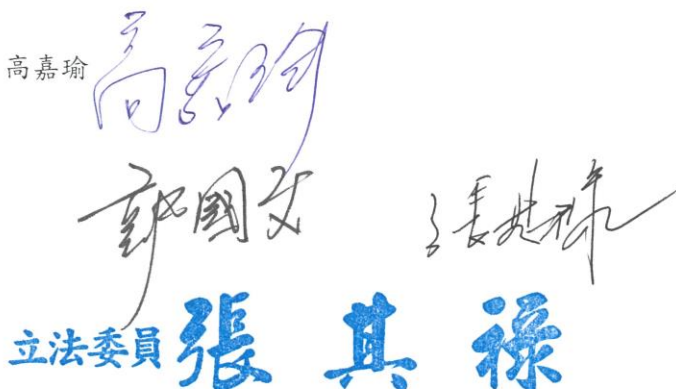 高嘉瑜 高嘉瑜
國 張其祿
立法委員 張其祿